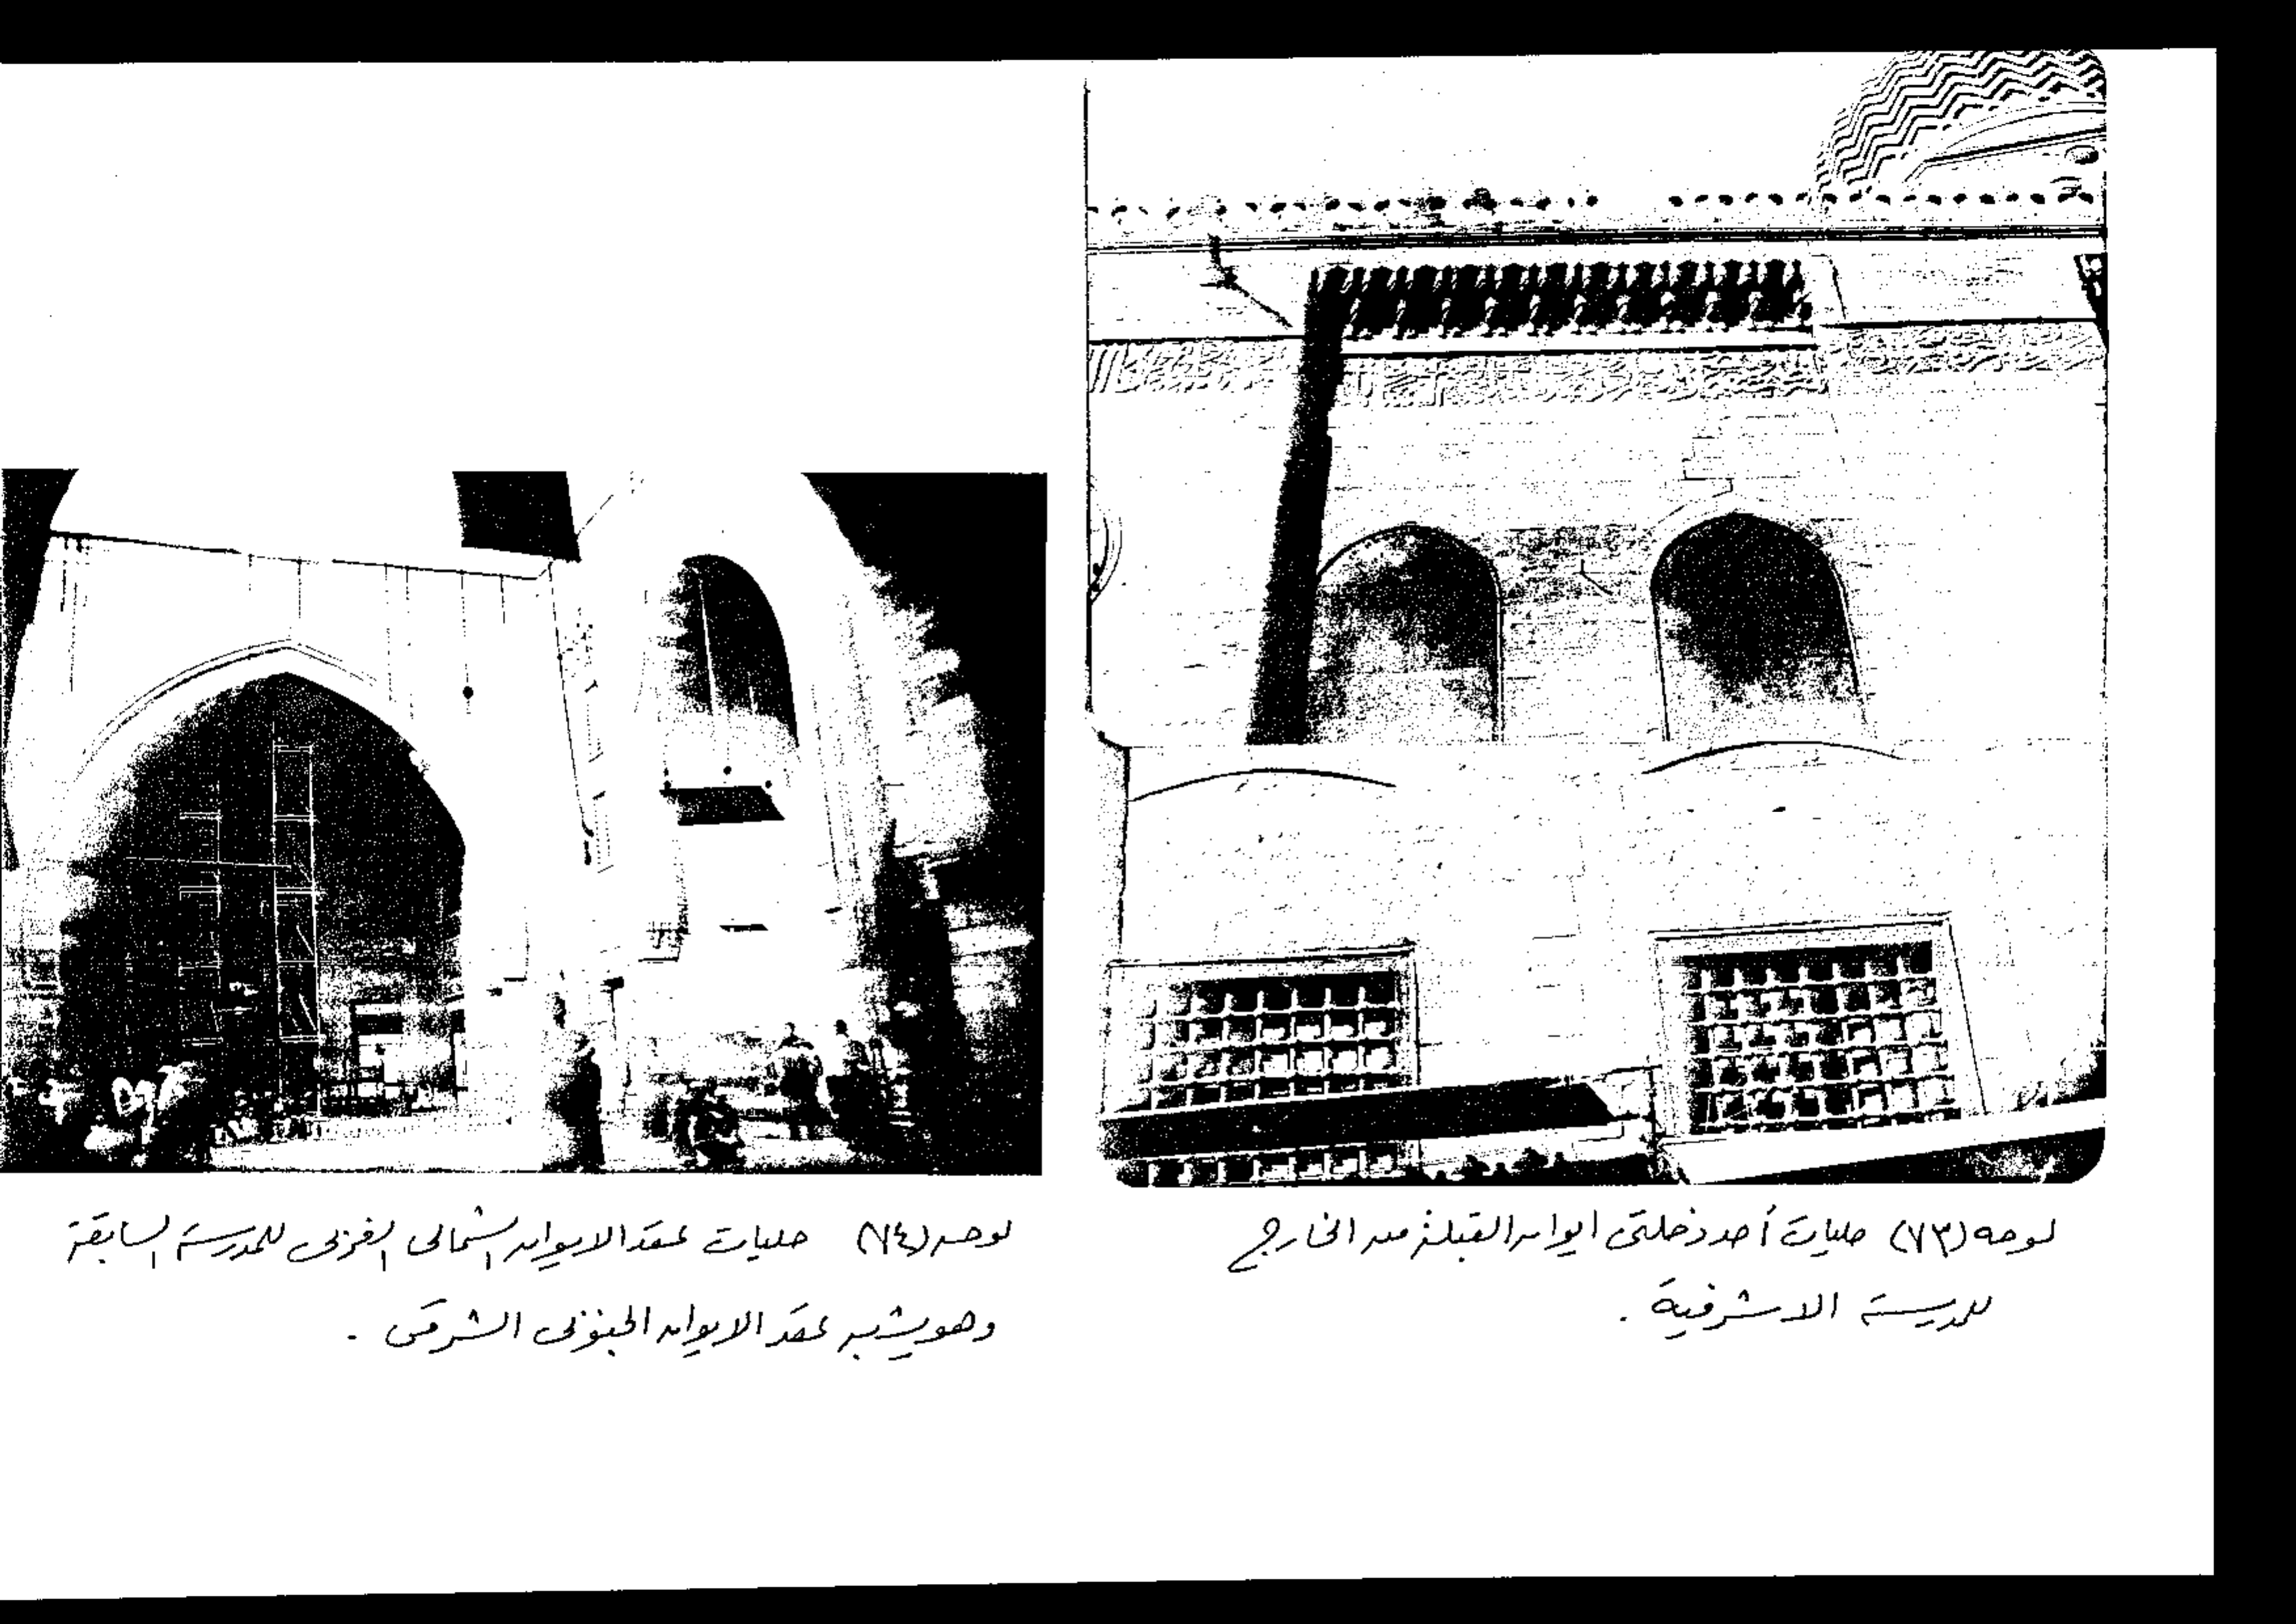 لوحه (٧٣) حليات أحد دخلتى ايوان القبلة من الخارج
لمدرسة الاشرفية .
لوحه (٧٤) حليات عقد الايوان الشمالى الغربى للمدرسة السابقة
وهو يشبه عقد الايوان الجنوبى الشرقى .